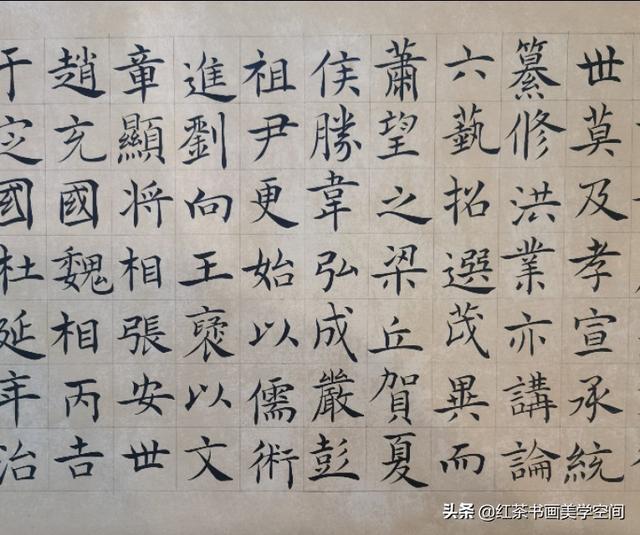 世莫及孝宣承統
纂修洪業亦講論
六藝招選茂異而
蕭望之梁丘賀夏
侯勝韋弘成嚴彭
祖尹更始以儒術
進劉向王褒以文
章顯将相張安世
趙充國魏相丙吉
于定國杜延年治
头条 @红茶书画美学空间